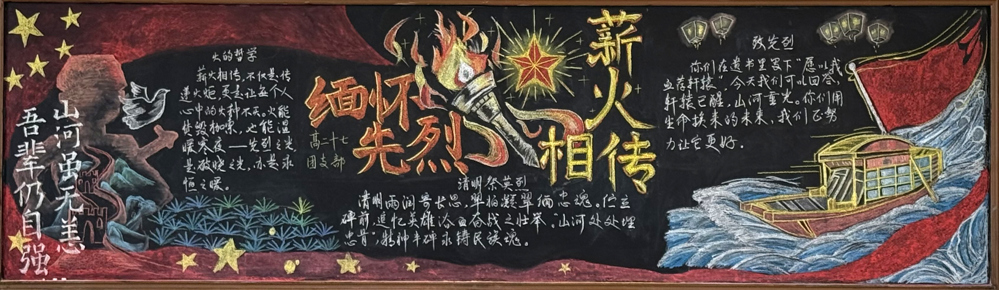 山河虽无恙
吾辈仍自强
火的哲学
薪火相传,不仅是传
递火炬,更是让每个人
心中的火种不灭。火能
烧毁枷锁,也能温
暖寒夜——先烈之光
是破晓之光,亦是永
恒之暖。
缅怀
先烈
高二十七
团支部
薪火
相传
清明祭英烈
清明雨润寄长思,翠柏凝翠缅忠魂。伫立
碑前,追忆英雄浴血奋战之壮举。"山河处处埋
忠骨",精神丰碑永铸民族魂。
致先烈
你们在遗书里写下"愿以我
血荐轩辕"今天我们可以回答,
轩辕已醒,山河重光。你们用
生命换来的未来,我们正努
力让它更好.